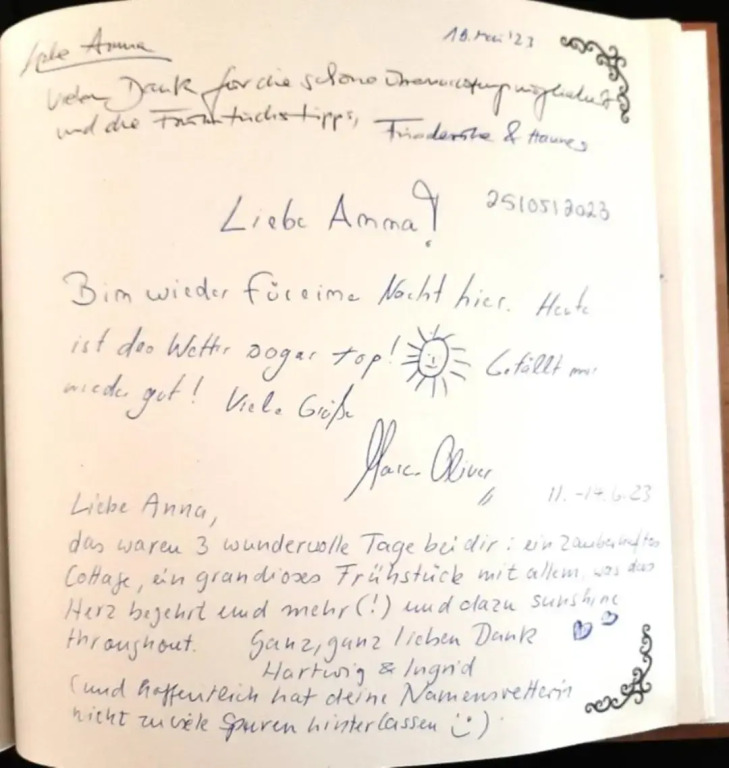 Liebe Anna 18. Mai '23
Vielen Dank für die schöne Übernachtungsmöglichkeit
und die Frühstückstipps, Friederike & Hannes
Liebe Anna! 25|05|2023
Bin wieder für eine Nacht hier. Heute
ist das Wetter sogar top! Gefällt mir
wieder gut! Viele Grüße
Marc Oliver
11.-14.6.23
Liebe Anna,
das waren 3 wundervolle Tage bei dir: ein zauberhaftes
Cottage, ein grandioses Frühstück mit allem, was das
Herz begehrt und mehr (!) und dazu sunshine
throughout. Ganz, ganz lieben Dank
Hartwig & Ingrid
(und hoffentlich hat deine Namensvetterin
nicht zu viele Spuren hinterlassen :))